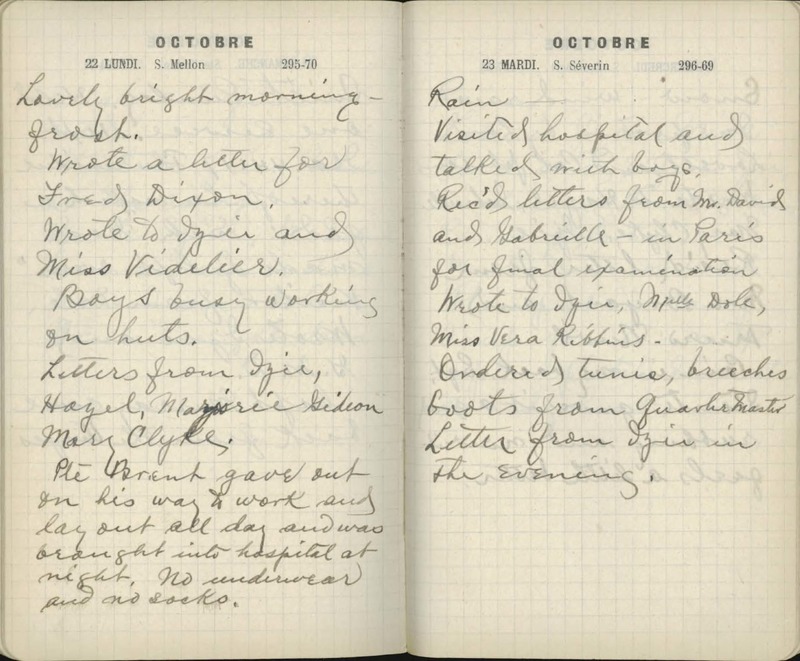 OCTOBRE
22 LUNDI. S. Mellon 295-70
Lovely bright morning -
frost.
Wrote a letter for
Fred Dixon.
Wrote to Izie and
Miss Videlier.
Boys busy working
on huts.
Letters from Izie,
Hazel, Marjorie Gideon
Mary Clyke.
Pte Brent gave out
on his way to work and
lay out all day and was
brought into hospital at
night. No underwear
and no socks.
OCTOBRE
23 MARDI. S. Séverin 296-69
Rain
Visited hospital and
talked with boys.
Rec'd letters from Mr. David
and Gabrielle - in Paris
for final examination
Wrote to Izie, Mlle Dole,
Miss Vera Ribbins -
Ordered tunic, breeches
boots from Quarter Master
Letter from Izie in
the evening.